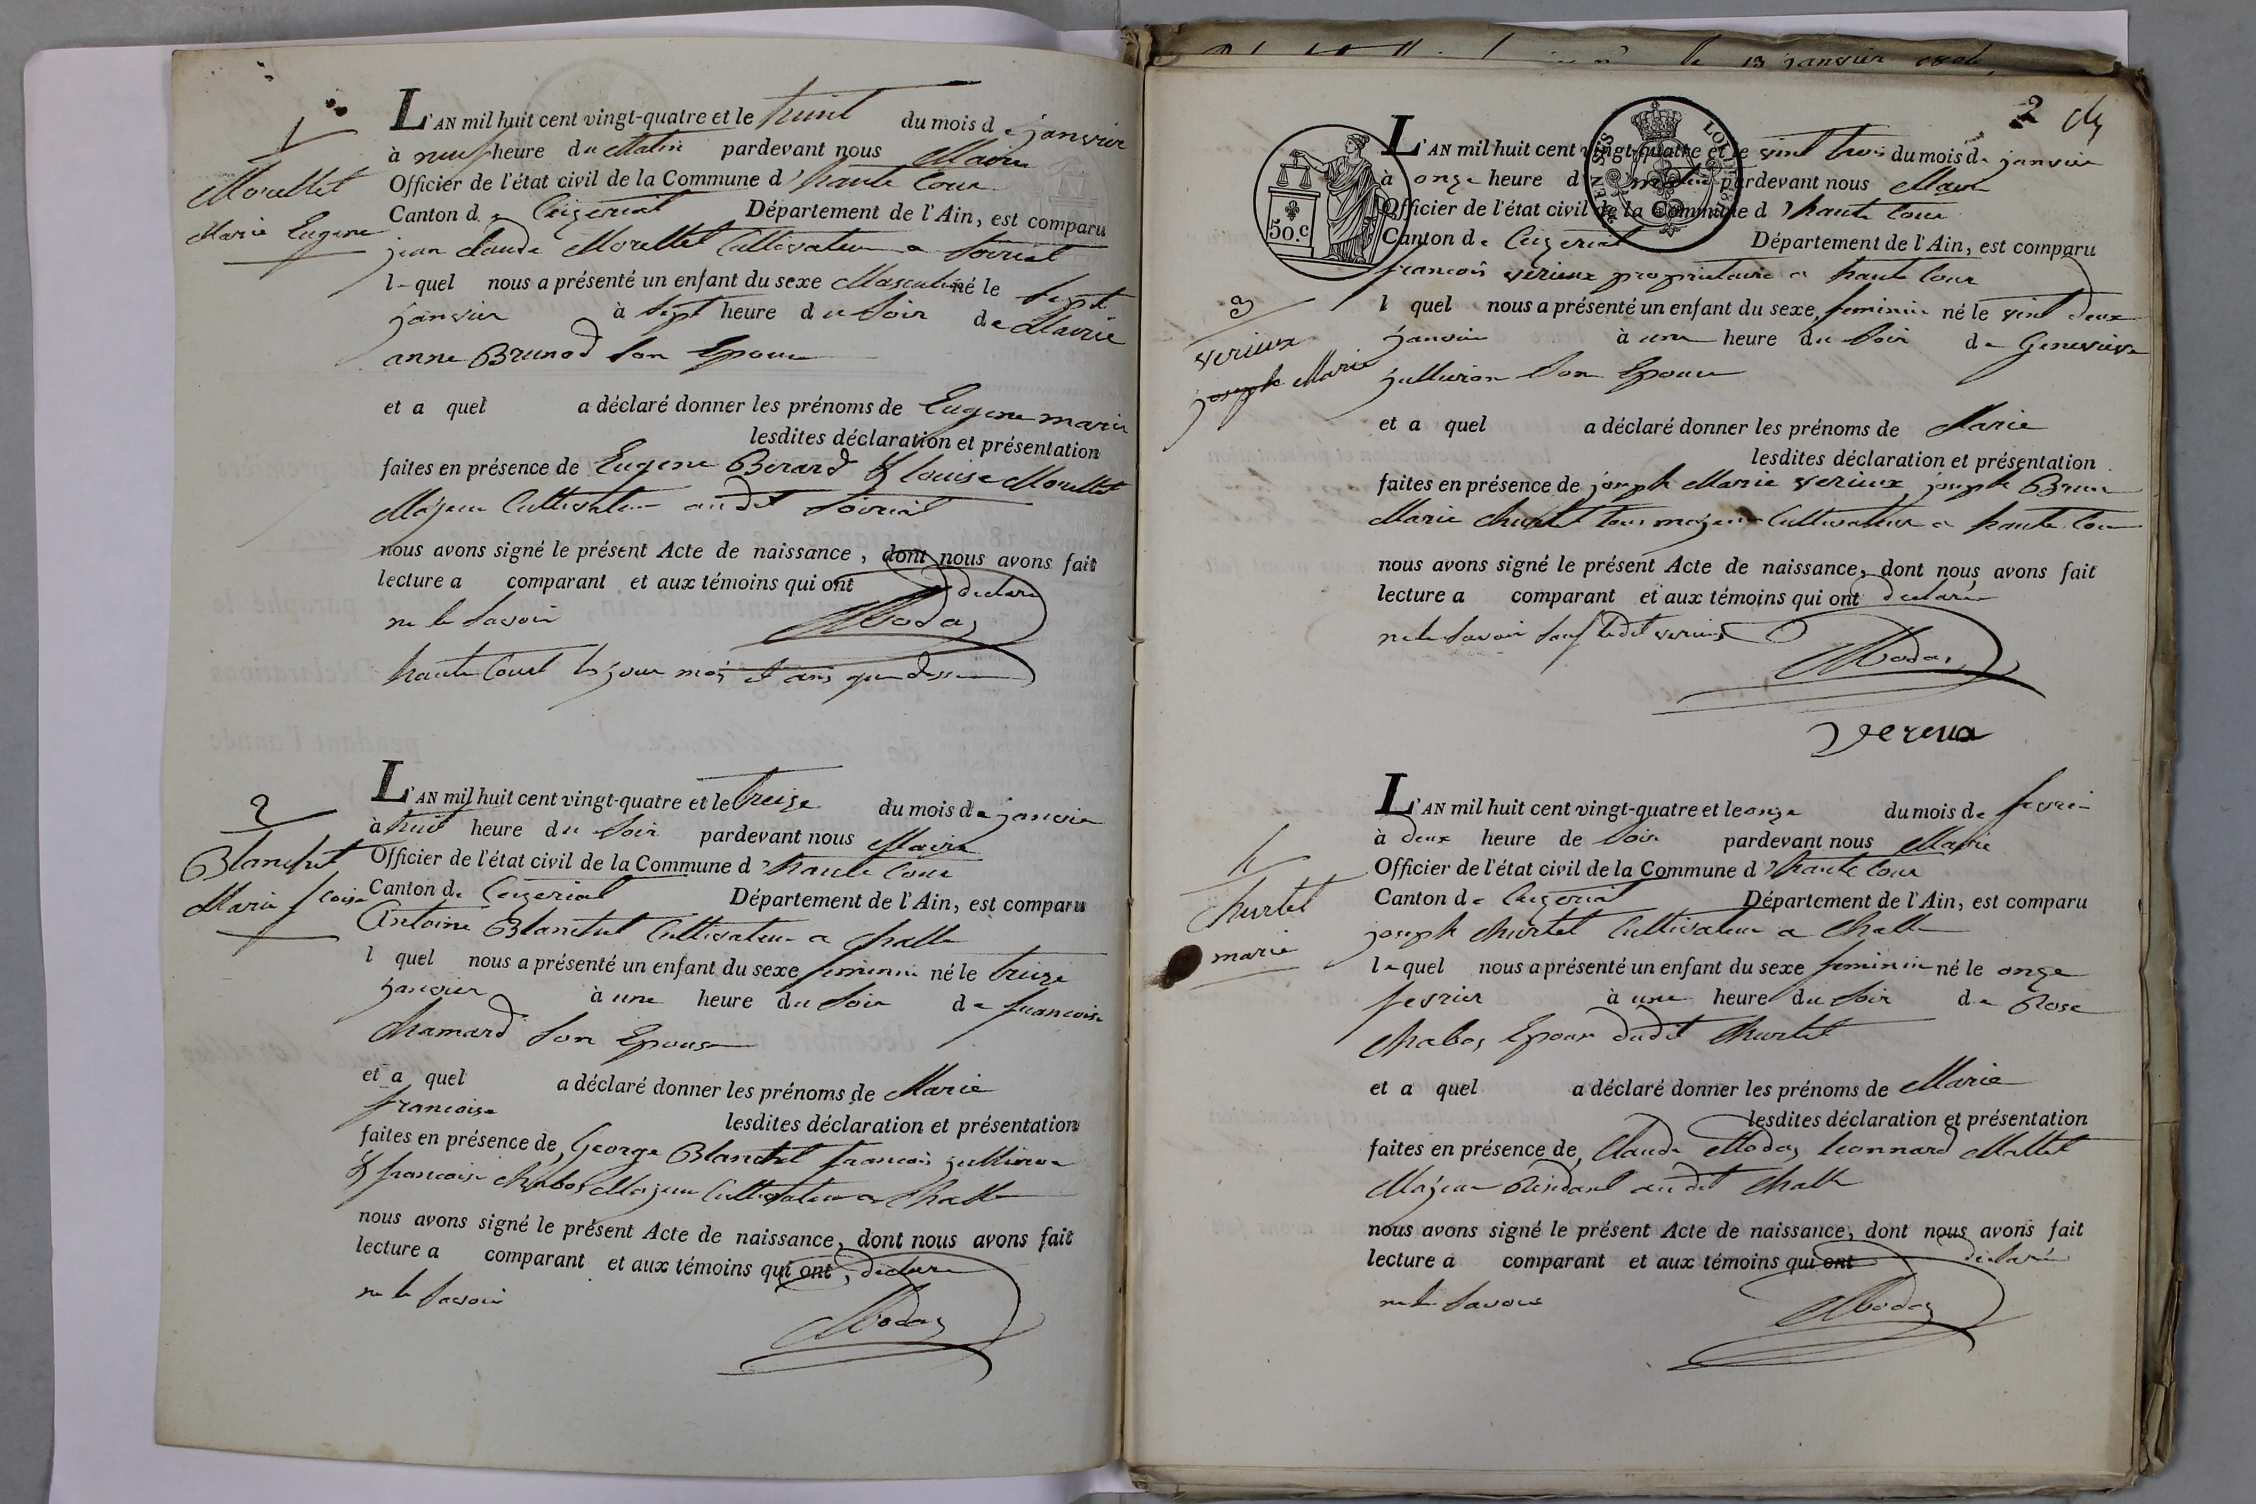 1
Morellet
Marie Eugene
L'AN mil huit cent vingt-quatre et le huit du mois de janvier
à neuf heure du Matin pardevant nous Maire
Officier de l'état civil de la Commune d'haute Cour
Canton de Ceizeriat Département de l'Ain, est comparu
jean Claude Morellet Cultivateur a
l-quel nous a présenté un enfant du sexe Masculin né le Sept
janvier à Sept heure du Soir de Marie
anne Brunod Son Epouse
et a quel a déclaré donner les prénoms de Eugene marie
lesdites déclaration et présentation
faites en présence de Eugene Berard & Louise Morellet
Majeur Cultivateur au dit
nous avons signé le présent Acte de naissance, dont nous avons fait
lecture a comparant et aux témoins qui ont declaré
ne le Savoir
Moday
haute Court les jour mois et ans que dessus
2
Blanchet
Marie fcoise
L'AN mil huit cent vingt-quatre et le treize du mois de janvier
à huit heure du Soir pardevant nous Maire
Officier de l'état civil de la Commune d'haute Cour
Canton de Ceizeriat Département de l'Ain, est comparu
Antoine Blanchet Cultivateur a Challe
l quel nous a présenté un enfant du sexe feminin né le treize
janvier à une heure du Soir de francoise
Chamard Son Epouse
et a quel a déclaré donner les prénoms de Marie
francoise lesdites déclaration et présentation
faites en présence de George Blanchet francois
& francoise Chabos Majeur Cultivateur a Challe
nous avons signé le présent Acte de naissance, dont nous avons fait
lecture a comparant et aux témoins qui ont, declaré
ne le Savoir
Moday
le 13 janvier
2
L'AN mil huit cent vingt-quatre et le vint trois du mois de janvier
à onze heure du matin pardevant nous Maire
Officier de l'état civil de la Commune d'haute Cour
50.C
Canton de Ceizeriat Département de l'Ain, est comparu
francois verieux proprietaire a haute Cour
3
verieux
joseph Marie
l quel nous a présenté un enfant du sexe feminin né le vint deux
janvier à une heure du Soir de Genevieve
Jullieron Son Epouse
et a quel a déclaré donner les prénoms de Marie
lesdites déclaration et présentation
faites en présence de joseph Marie verieux joseph Brun
Marie Churlet tous majeur Cultivateur a haute Cour
nous avons signé le présent Acte de naissance, dont nous avons fait
lecture a comparant et aux témoins qui ont declarée
ne le Savoir Sauf ledit verieux
Moday
vereux
4
Churlet
marie
L'AN mil huit cent vingt-quatre et le onze du mois de fevrier
à deux heure de Soir pardevant nous Maire
Officier de l'état civil de la Commune d'haute Cour
Canton de Ceizeriat Département de l'Ain, est comparu
joseph Churlet Cultivateur a Challe
le quel nous a présenté un enfant du sexe feminin né le onze
fevrier à une heure du Soir de Rose
Chabos Epouse dudit Churlet
et a quel a déclaré donner les prénoms de Marie
lesdites déclaration et présentation
faites en présence de Claude Moday Leonnard Mallet
Majeur Residant au dit Challe
nous avons signé le présent Acte de naissance, dont nous avons fait
lecture a comparant et aux témoins qui ont declaré
ne le Savoir
Moday